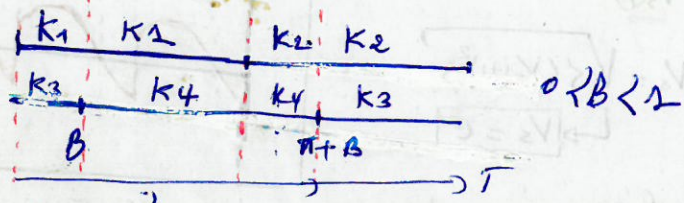 K1 K1 K2 K2
K3 K4 K4 K3
0<B<1
B π+B
T